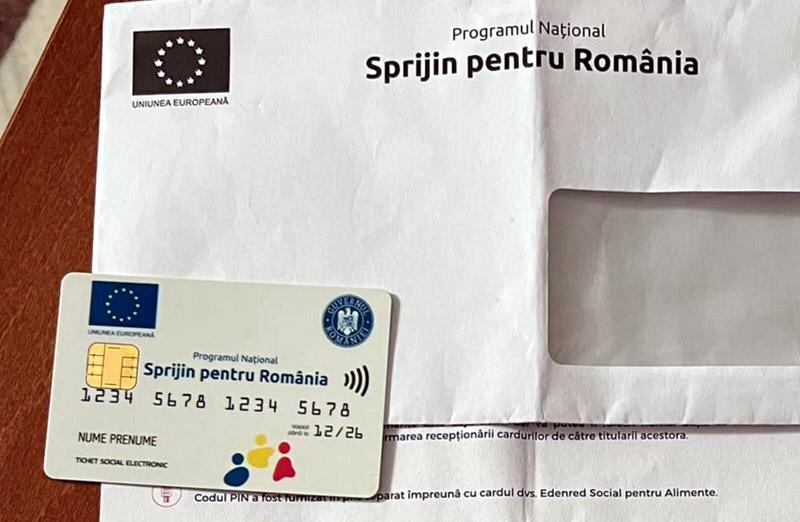 UNIUNEA EUROPEANĂ
Programul Național
Sprijin pentru România
UNIUNEA EUROPEANĂ
GUVERNUL ROMÂNIEI
Programul Național
Sprijin pentru România
1234 5678 1234 5678
12/26
NUME PRENUME
TICHET SOCIAL ELECTRONIC
recepționării cardurilor de către titularii acestora.
Codul PIN a fost furnizat în împreună cu cardul dvs. Edenred Social pentru Alimente.